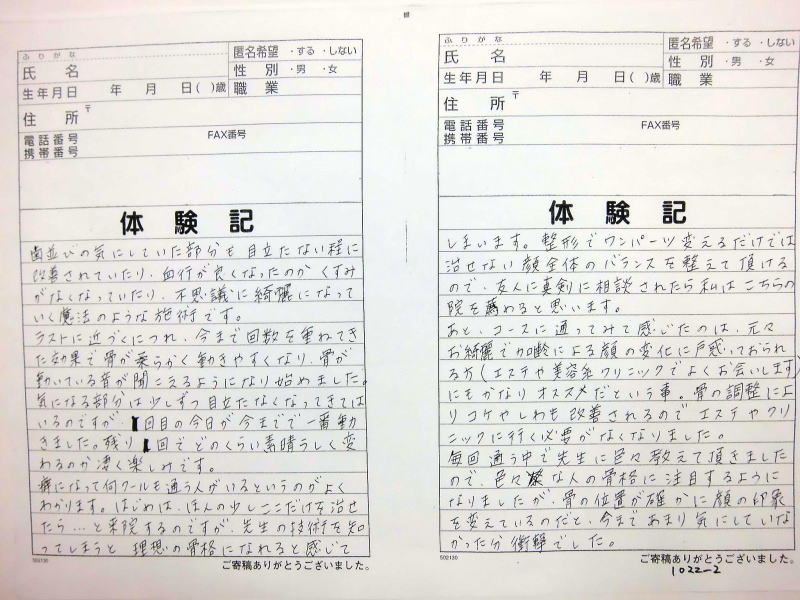 ふりがな
氏　名
匿名希望 ・する ・しない
性　別 ・男 ・女
生年月日　年　月　日(　)歳
職　業
住　所 〒
電話番号
携帯番号
FAX番号
体　験　記
歯並びの気にしていた部分も目立たない程に
改善されていたり、血行が良くなったのか くすみ
がなくなっていたり、不思議に綺麗になって
いく魔法のような施術です。
ラストに近づくにつれ、今まで回数を重ねてき
た効果で骨が柔らかく動きやすくなり、骨が
動いている音が聞こえるようになり始めました。
気になる部分は少しずつ目立たなくなってきては
いるのですが、1回目の今日が今までで一番動
きました。残り1回でどのくらい素晴らしく変
わるのか凄く楽しみです。
癖になって何クールも通う人がいるというのがよく
わかります。はじめは、ほんの少しここだけを治せ
たら…と来院するのですが、先生の技術を知
ってしまうと 理想の骨格になれると感じて
502130
ご寄稿ありがとうございました。
ふりがな
氏　名
匿名希望 ・する ・しない
性　別 ・男 ・女
生年月日　年　月　日(　)歳
職　業
住　所 〒
電話番号
携帯番号
FAX番号
体　験　記
しまいます。整形でワンパーツ変えるだけでは
治せない顔全体のバランスを整えて頂ける
ので、友人に真剣に相談されたら私はこちらの
院を薦めると思います。
あと、コースに通ってみて感じたのは、元々
お綺麗で加齢による顔の変化に戸惑っておられ
る方(エステや美容系クリニックでよくお会いします)
にもかなりオススメだという事。骨の調整によ
りコケやしわも改善されるのでエステやクリ
ニックに行く必要がなくなりました。
毎回通う中で先生に色々教えて頂きました
ので、色々な人の骨格に注目するように
なりましたが、骨の位置が確かに顔の印象
を変えているのだと、今まであまり気にしていな
かった分衝撃でした。
502130
ご寄稿ありがとうございました。
1022-2